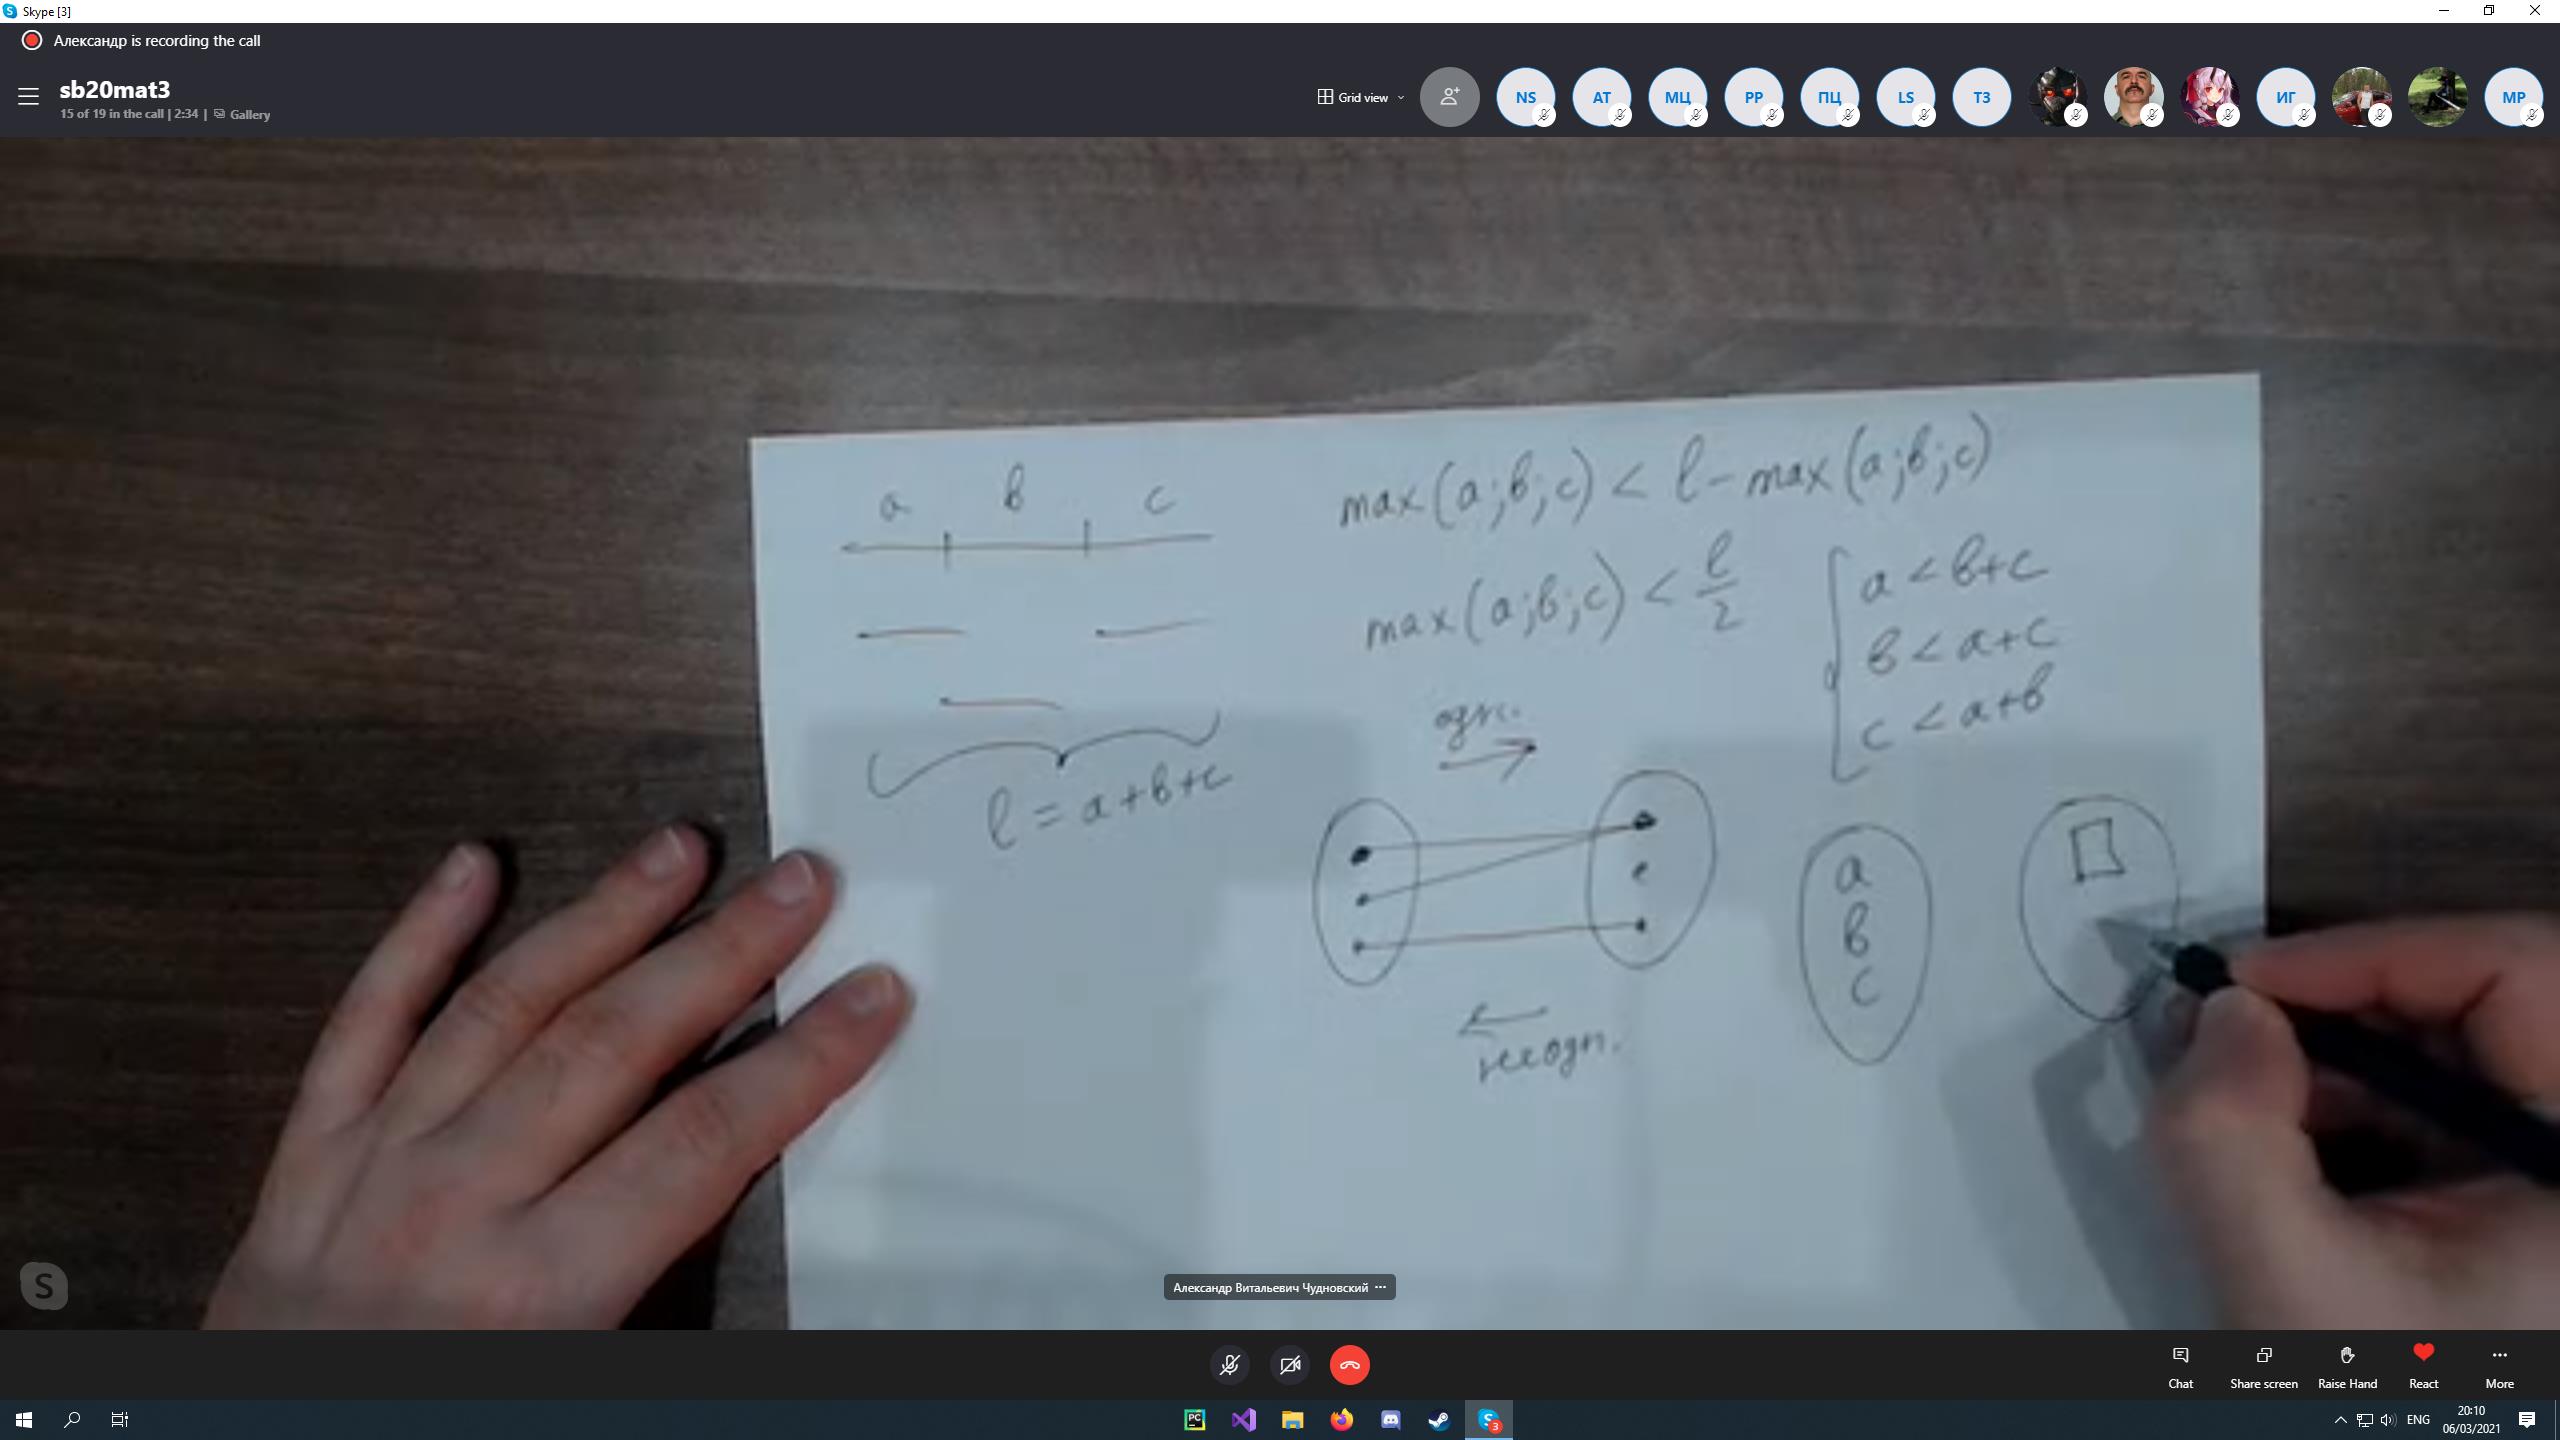 Skype [3]
Александр is recording the call
sb20mat3
15 of 19 in the call | 2:34 | Gallery
Grid view
NS
AT
МЦ
PP
ПЦ
LS
ТЗ
ИГ
MP
a в c
max(a;в;c) < l - max(a;в;c)
max(a;в;c) < l/2
a < в+c
в < a+c
c < a+в
l = a+в+c
одн.
a
в
c
неодн.
S
Александр Витальевич Чудновский
Chat
Share screen
Raise Hand
React
More
PC
S 3
ENG
20:10
06/03/2021